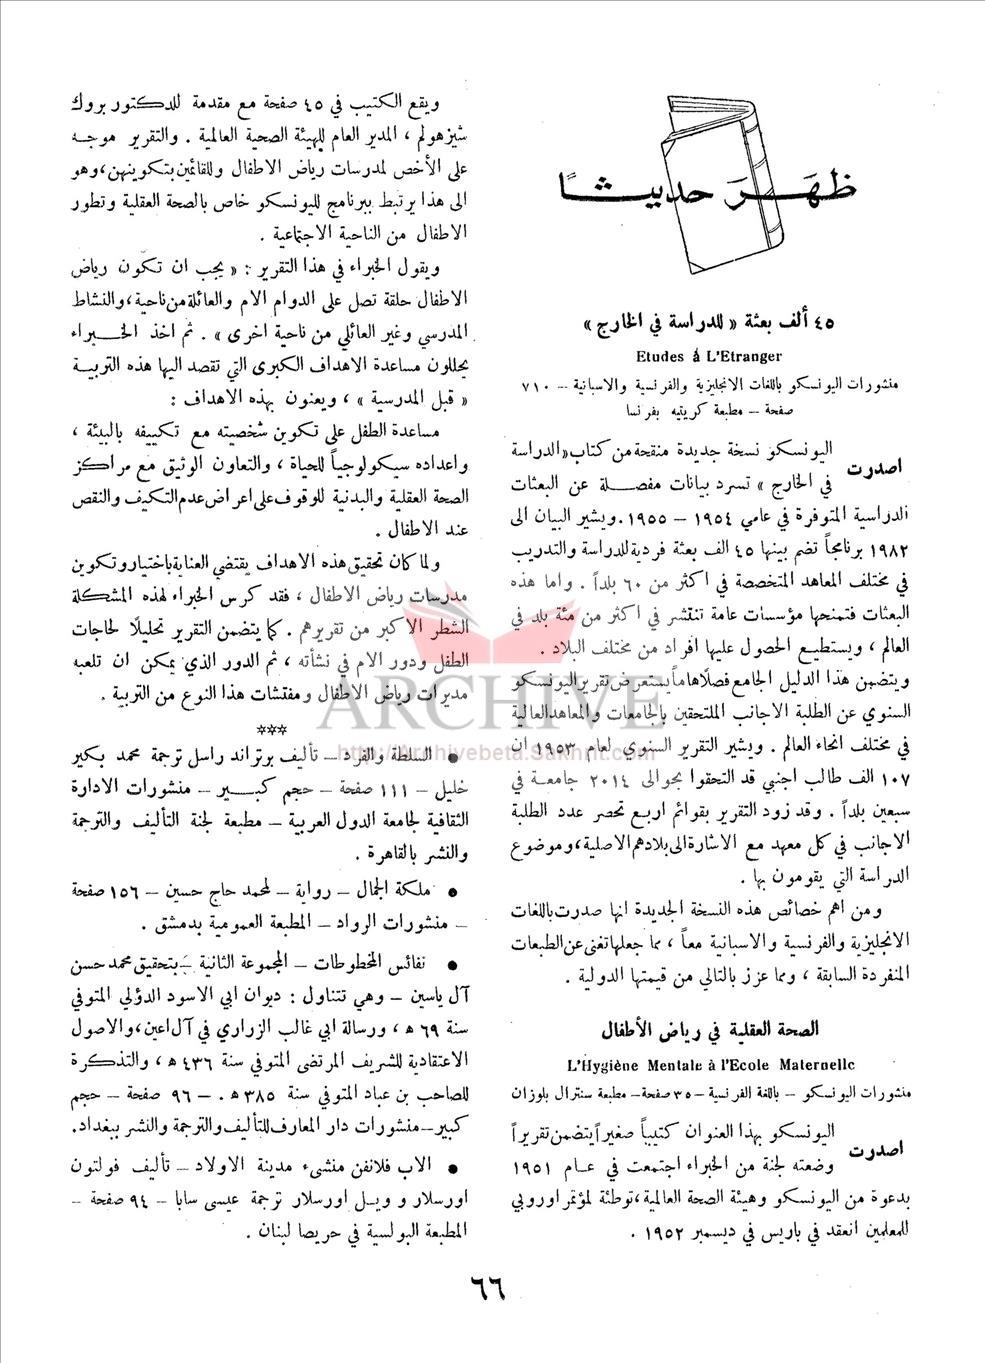 ظهَرَ حديثًا
٤٥ ألف بعثة « للدراسة في الخارج »
Etudes à L'Etranger
منشورات اليونسكو باللغات الانجليزية والفرنسية والاسبانية – ٧١٠
صفحة – مطبعة كريتيه بفرنسا
اصدرت اليونسكو نسخة جديدة منقحة من كتاب « الدراسة
في الخارج » تسرد بيانات مفصلة عن البعثات
الدراسية المتوفرة في عامي ١٩٥٤ – ١٩٥٥ . ويشير البيان الى
١٩٨٢ برنامجاً تضم بينها ٤٥ الف بعثة فردية للدراسة والتدريب
في مختلف المعاهد المتخصصة في اكثر من ٦٠ بلداً . واما هذه
البعثات فتمنحها مؤسسات عامة تنتشر في اكثر من مئة بلد في
العالم ، ويستطيع الحصول عليها افراد من مختلف البلاد .
ويتضمن هذا الدليل الجامع فصلاً هاماً يستعرض تقرير اليونسكو
السنوي عن الطلبة الاجانب الملتحقين بالجامعات والمعاهد العالية
في مختلف انحاء العالم . ويشير التقرير السنوي لعام ١٩٥٣ ان
١٠٧ الف طالب اجنبي قد التحقوا بحوالى ٢٠١٤ جامعة في
سبعين بلداً . وقد زود التقرير بقوائم اربع تحصر عدد الطلبة
الاجانب في كل معهد مع الاشارة الى بلادهم الاصلية ، وموضوع
الدراسة التي يقومون بها .
ومن اهم خصائص هذه النسخة الجديدة انها صدرت باللغات
الانجليزية والفرنسية والاسبانية معاً ، مما جعلها تغني عن الطبعات
المنفردة السابقة ، ومما عزز بالتالي من قيمتها الدولية .
الصحة العقلية في رياض الأطفال
L'Hygiène Mentale à l'Ecole Maternelle
منشورات اليونسكو – باللغة الفرنسية – ٣٥ صفحة – مطبعة سنترال بلوزان
اصدرت اليونسكو بهذا العنوان كتيباً صغيراً يتضمن تقريراً
وضعته لجنة من الخبراء اجتمعت في عام ١٩٥١
بدعوة من اليونسكو وهيئة الصحة العالمية ، توطئة لمؤتمر اوروبي
للمعلمين انعقد في باريس في ديسمبر ١٩٥٢ .
ويقع الكتيب في ٤٥ صفحة مع مقدمة للدكتور بروك
شيزهولم ، المدير العام للهيئة الصحية العالمية . والتقرير موجه
على الأخص لمدرسات رياض الاطفال وللقائمين بتكوينهن ، وهو
الى هذا يرتبط ببرنامج لليونسكو خاص بالصحة العقلية وتطور
الاطفال من الناحية الاجتماعية .
ويقول الخبراء في هذا التقرير : « يجب ان تكوّن رياض
الاطفال حلقة تصل على الدوام الام والعائلة من ناحية ، والنشاط
المدرسي وغير العائلي من ناحية اخرى » . ثم اخذ الخبراء
يحللون مساعدة الاهداف الكبرى التي تقصد اليها هذه التربية
« قبل المدرسية » ، ويعنون بهذه الاهداف :
مساعدة الطفل على تكوين شخصيته مع تكييفه بالبيئة ،
واعداده سيكولوجياً للحياة ، والتعاون الوثيق مع مراكز
الصحة العقلية والبدنية للوقوف على اعراض عدم التكيف والنقص
عند الاطفال .
ولما كان تحقيق هذه الاهداف يقتضي العناية باختيار وتكوين
مدرسات رياض الاطفال ، فقد كرس الخبراء لهذه المشكلة
الشطر الاكبر من تقريرهم . كما يتضمن التقرير تحليلًا لحاجات
الطفل ودور الام في نشأته ، ثم الدور الذي يمكن ان تلعبه
مديرات رياض الاطفال ومفتشات هذا النوع من التربية .
***
• السلطة والفرد – تأليف برتراند راسل ترجمة محمد بكير
خليل – ١١١ صفحة – حجم كبير – منشورات الادارة
الثقافية لجامعة الدول العربية – مطبعة لجنة التأليف والترجمة
والنشر بالقاهرة .
• ملكة الجمال – رواية – لمحمد حاج حسين – ١٥٦ صفحة
– منشورات الرواد – المطبعة العمومية بدمشق .
• نفائس المخطوطات – المجموعة الثانية – بتحقيق محمد حسن
آل ياسين – وهي تتناول : ديوان ابي الاسود الدؤلي المتوفي
سنة ٦٩ ه ، ورسالة ابي غالب الزراري في آل اعين ، والاصول
الاعتقادية للشريف المرتضى المتوفي سنة ٤٣٦ ه ، والتذكرة
للصاحب بن عباد المتوفي سنة ٣٨٥ ه . – ٩٦ صفحة – حجم
كبير – منشورات دار المعارف للتأليف والترجمة والنشر ببغداد .
• الاب فلانفن منشىء مدينة الاولاد – تأليف فولتون
اورسلار و ويل اورسلار ترجمة عيسى سابا – ٩٤ صفحة –
المطبعة البولسية في حريصا لبنان .
٦٦
ARCHIVE
http://Archivebeta.Sakhrit.com